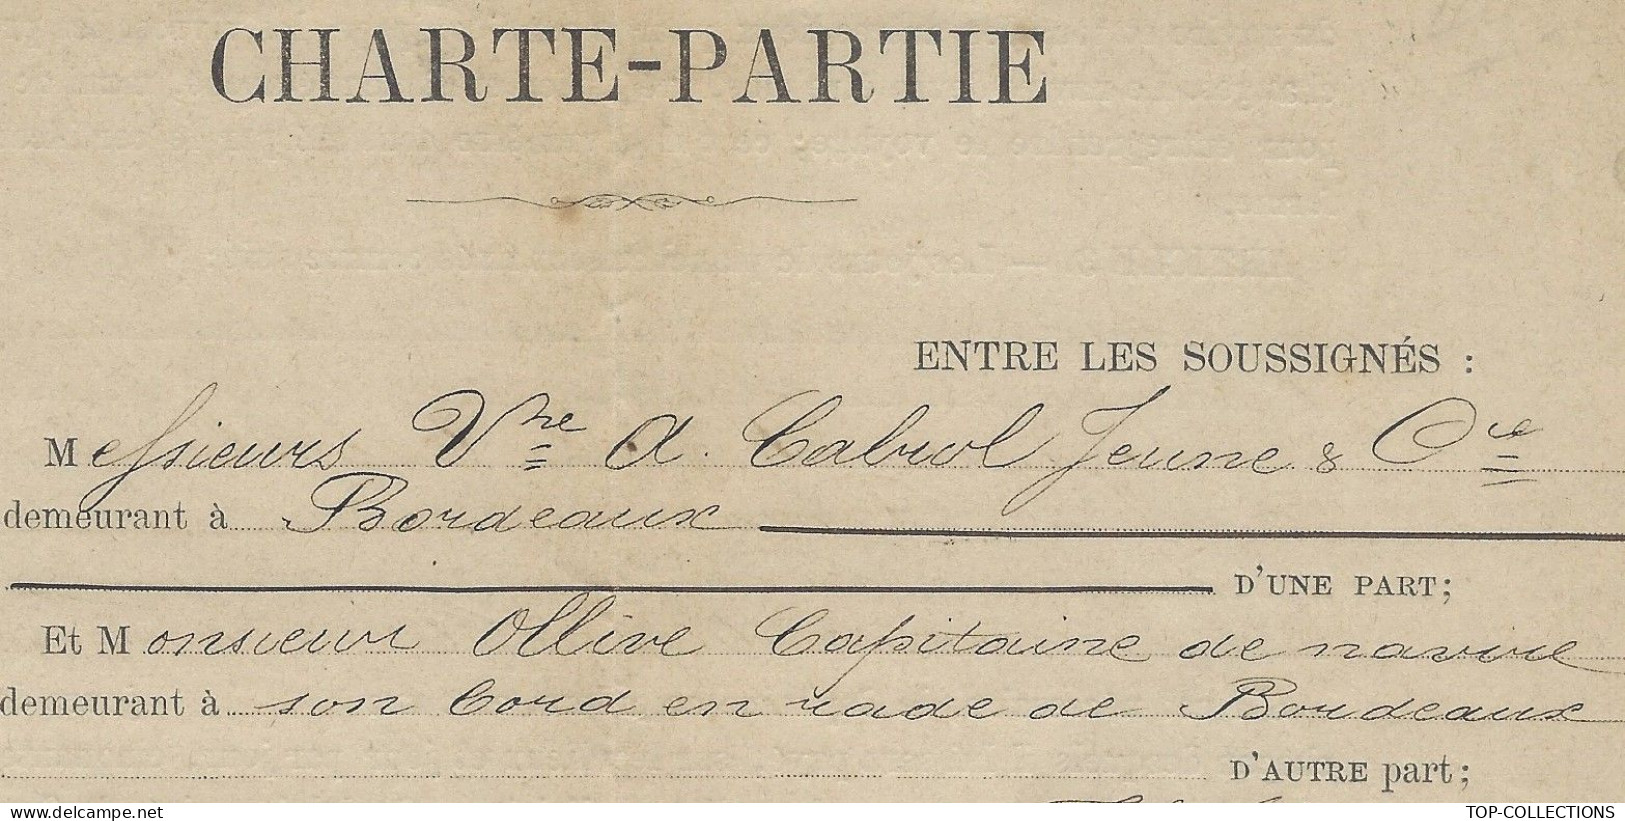 CHARTE-PARTIE
ENTRE LES SOUSSIGNÉS :
Messieurs Vve A. Cabrol Jeune & Cie
demeurant à Bordeaux
D'UNE PART;
Et Monsieur Ollive Capitaine de navire
demeurant à son bord en rade de Bordeaux
D'AUTRE part;
TOP-COLLECTIONS